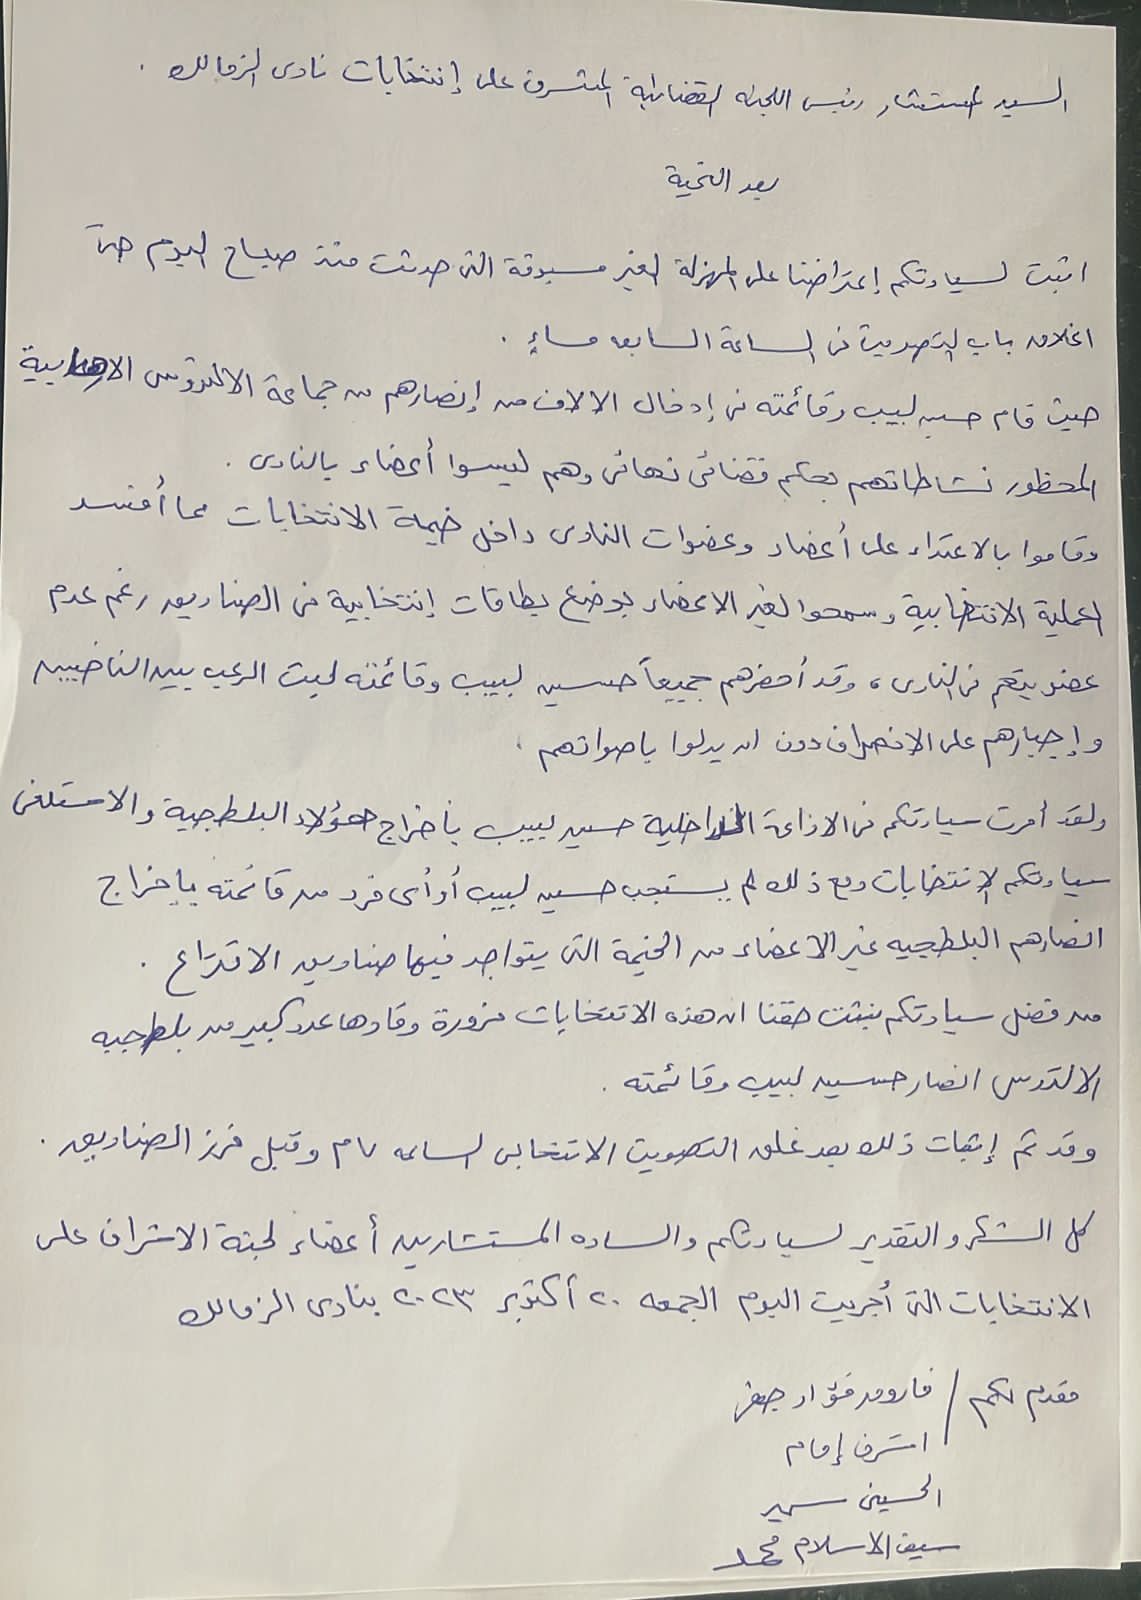 السيد المستشار رئيس اللجنة القضائية المشرف على إنتخابات نادى الزمالك .
بعد التحية
اثبت لسيادتكم إعتراضنا على المهزلة الغير مسبوقة التى حدثت منذ صباح اليوم حتى
اغلاق باب التصويت فى الساعة السابعه مساءٍ .
حيث قام حسين لبيب وقائمته فى إدخال الالاف من إنصارهم من جماعة الالتروس الارهابية
المحظور نشاطاتهم بحكم قضائى نهائى وهم ليسوا أعضاء بالنادى .
وقاموا بالاعتداء على أعضاء وعضوات النادى داخل خيمة الانتخابات مما أفسد
العملية الانتخابية وسمحوا لغير الاعضاء بوضع بطاقات إنتخابية فى الصناديق رغم عدم
عضويتهم فى النادى ، وقد أحضرهم جميعاً حسين لبيب وقائمته لبث الرعب بين الناخبين
وإجبارهم على الانصراف دون ان يدلوا باصواتهم .
ولقد أمرت سيادتكم فى الاذاعة الداخلية حسين لبيب بأخراج هؤلاء البلطجية والا ستلغى
سيادتكم الإنتخابات ومع ذلك لم يستجب حسين لبيب أو أى فرد من قائمته بإخراج
انصارهم البلطجيه غير الاعضاء من الخيمة التى يتواجد فيها صناديق الاقتراع .
من فضل سيادتكم نثبت حقنا ان هذه الانتخابات مزورة وقادها عدد كبير من بلطجيه
الالتروس انصار حسين لبيب وقائمته .
وقد تم إثبات ذلك بعد غلق التصويت الانتخابى الساعه ٧ م وقبل فرز الصناديق .
كل الشكر والتقدير لسيادتكم والساده المستشارين أعضاء لجنة الاشراف على
الانتخابات التى أجريت اليوم الجمعه ٢٠ أكتوبر ٢٠٢٣ بنادى الزمالك
مقدم لكم / فاروق فؤاد جعفر
اشرف إمام
الحسينى سمير
سيف الاسلام محمد